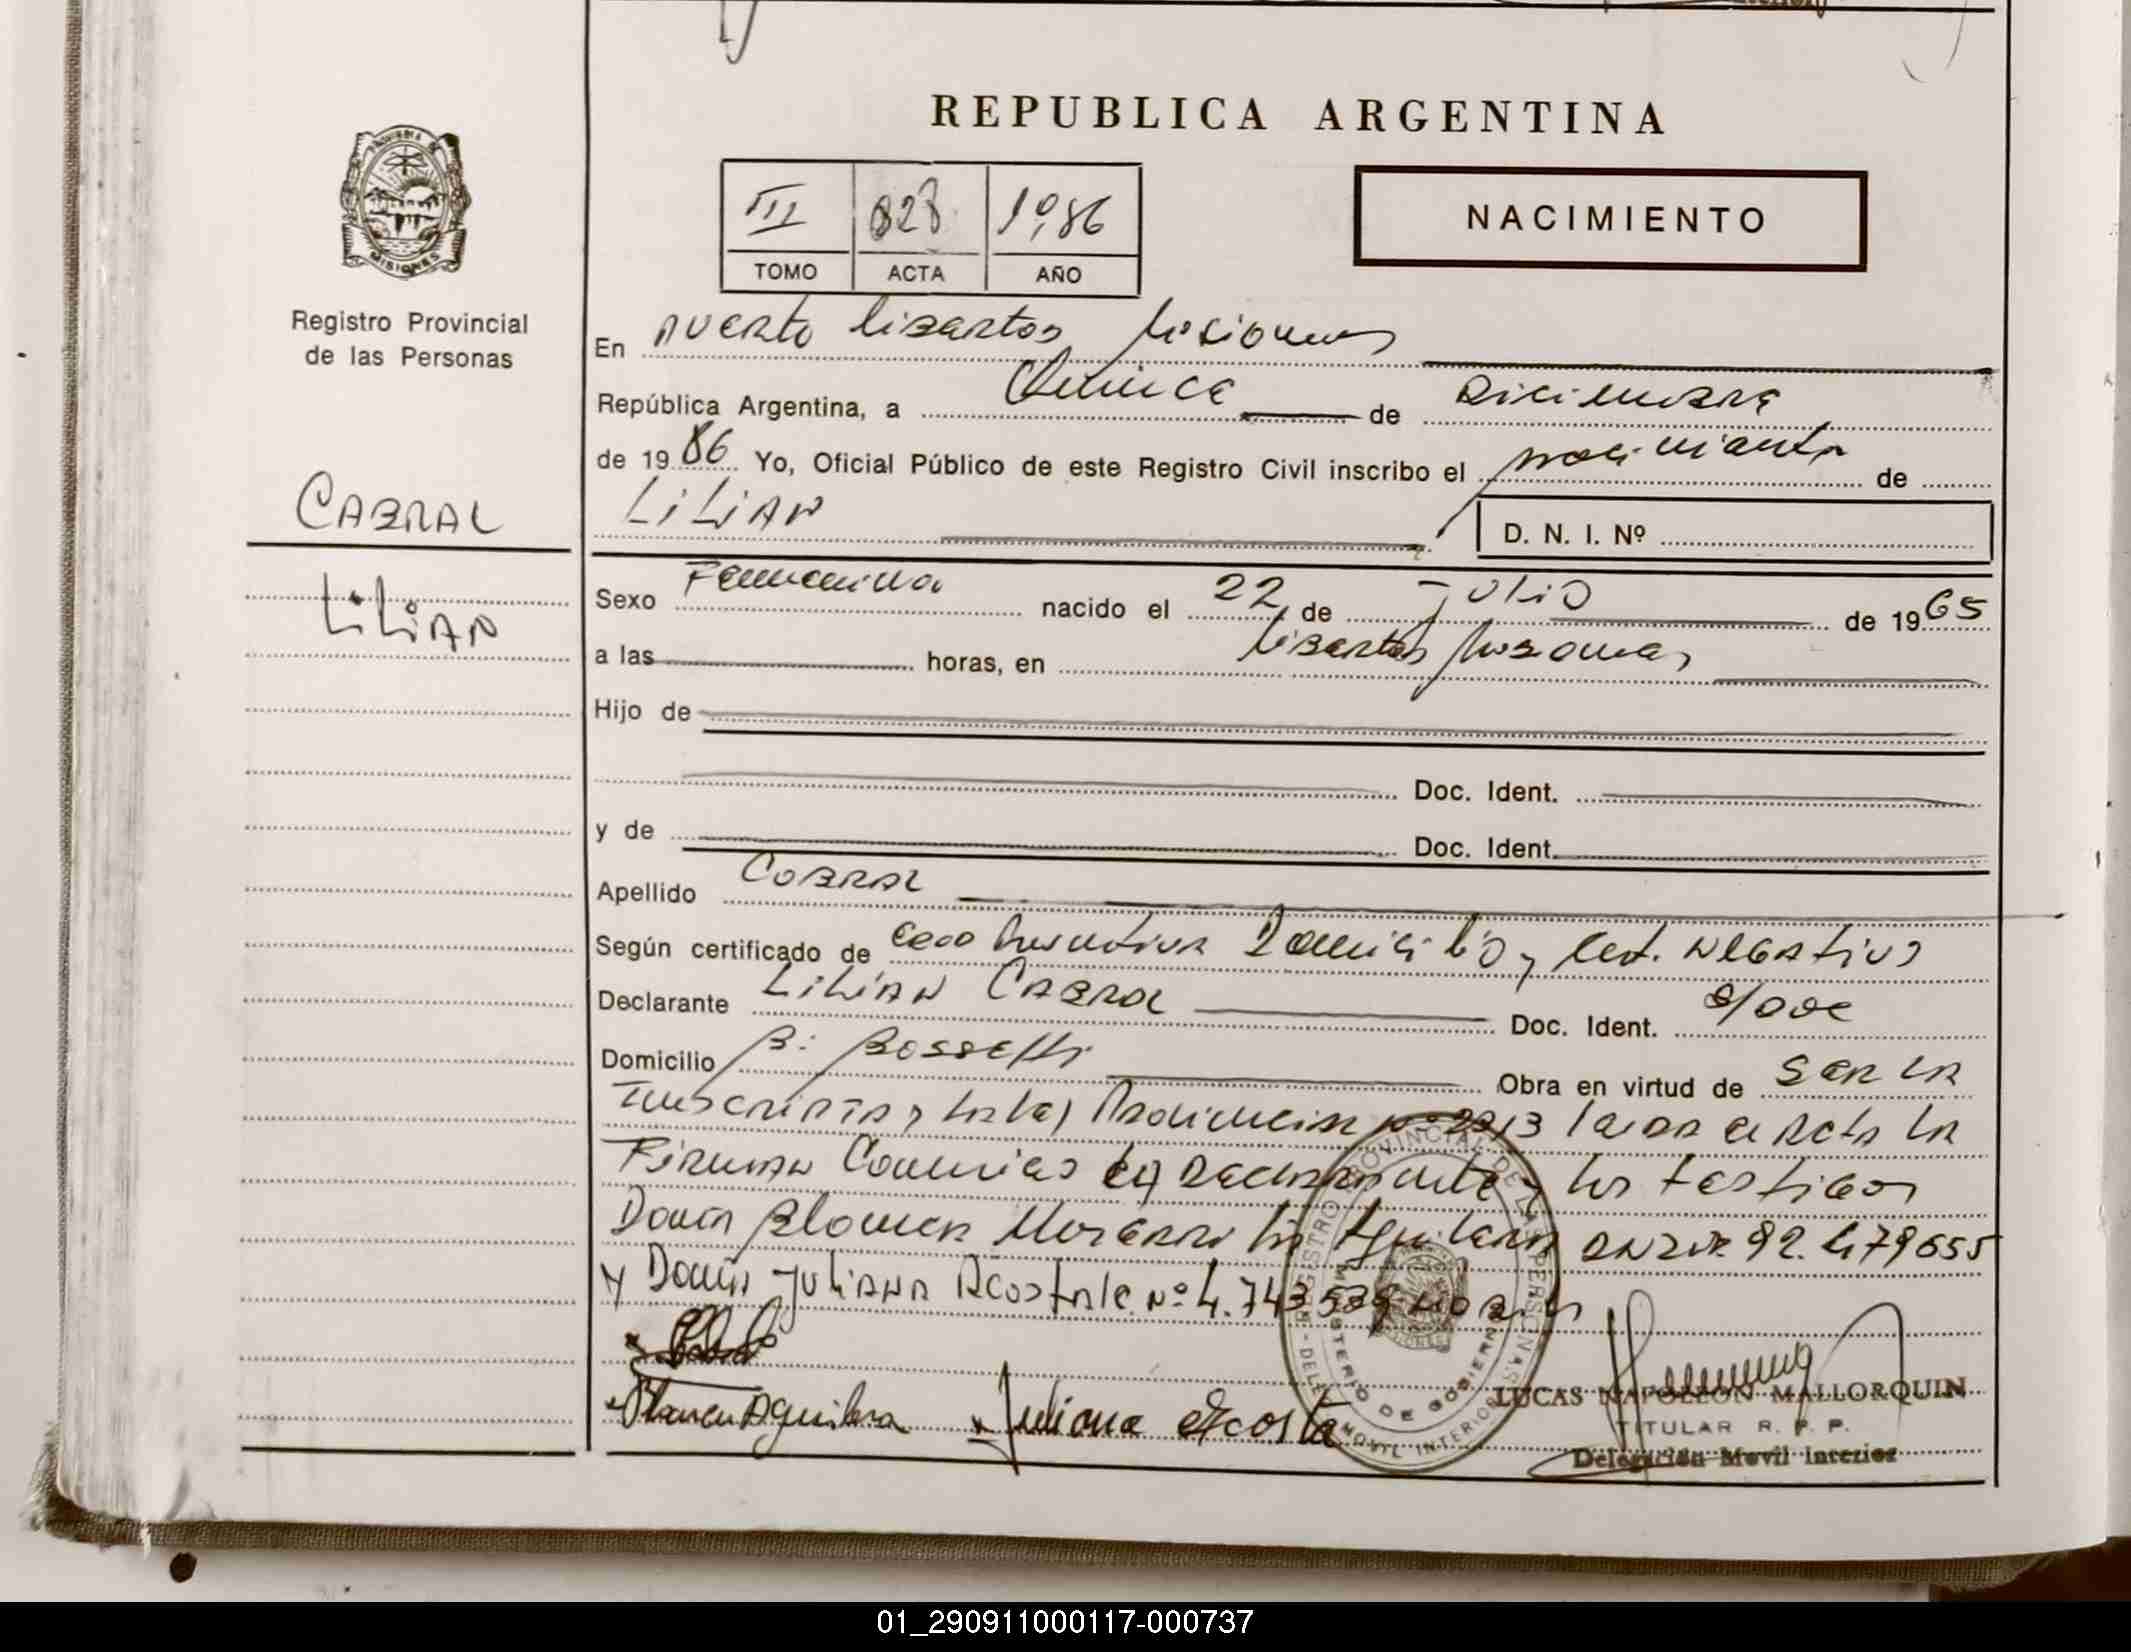 REPUBLICA ARGENTINA
III 828 1986
TOMO ACTA AÑO
NACIMIENTO
MISIONES
Registro Provincial
de las Personas
CABRAL
LiLiAN
En Puerto Libertad Misiones
República Argentina, a Quince de Diciembre
de 1986 Yo, Oficial Público de este Registro Civil inscribo el nacimiento de
LiLiAN
D. N. I. Nº
Sexo Femenino nacido el 22 de Julio de 1965
a las horas, en Libertad Misiones
Hijo de
Doc. Ident.
y de Doc. Ident.
Apellido Cabral
Según certificado de Domicilio y Cert. Negativo
Declarante LiLiAN Cabral Doc. Ident.
Domicilio B: Rosselli Obra en virtud de Ser la
Inscripta Ley Nº Leida el Acta la
Firman Conmigo la Declarante y los testigos
Doña Blanca Aguilera DNI Nº 92.479655
y Doña Juliana Acosta lc. Nº 4.743539
Blanca Aguilera Juliana Acosta
REGISTRO PROVINCIAL DE LAS PERSONAS
MINISTERIO DE GOBIERNO
MOVIL INTERIOR
LUCAS NAPOLEON MALLORQUIN
TITULAR R. P. P.
Delegación Movil Interior
01_290911000117-000737